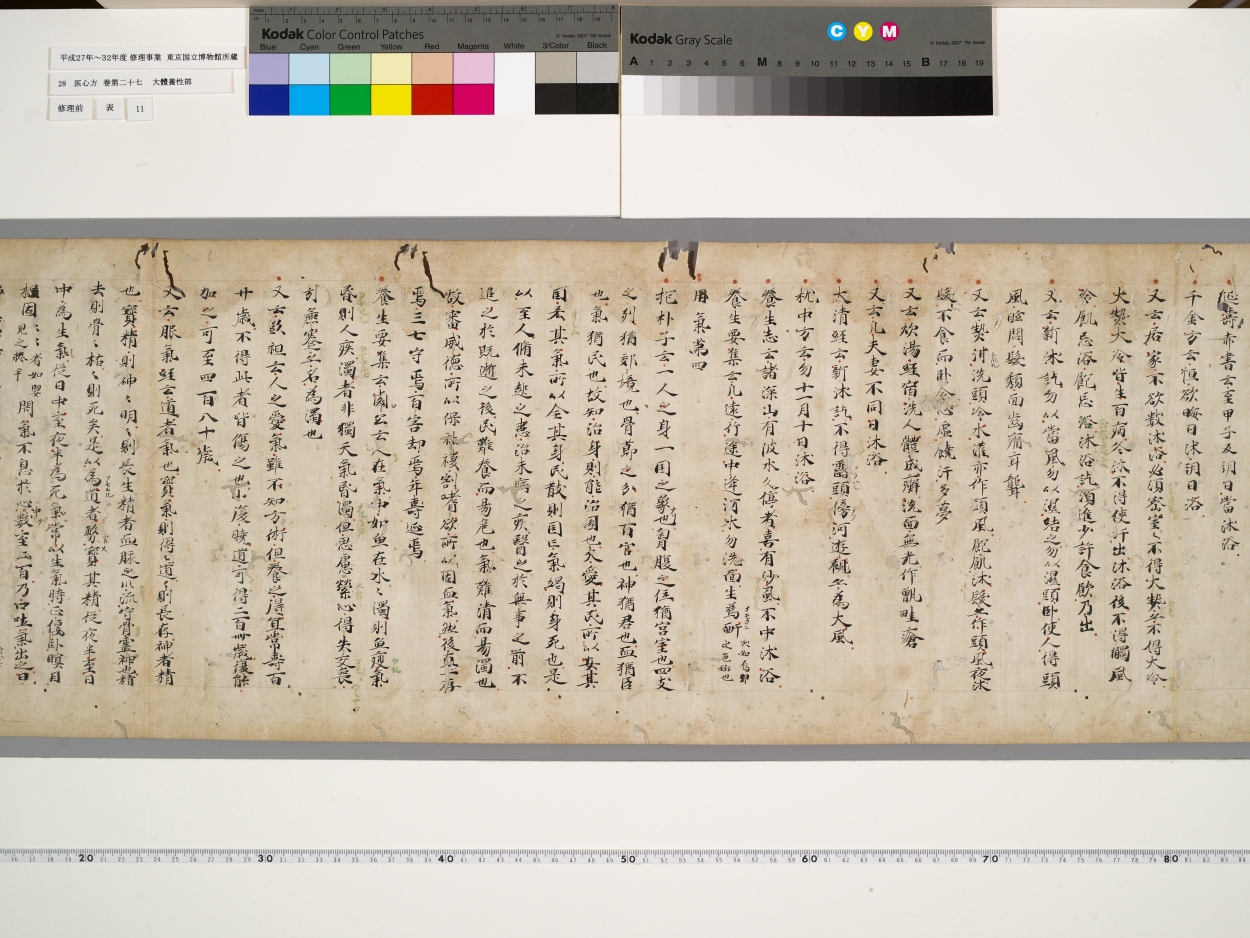 平成27年～32年度 修理事業 東京国立博物館所蔵
28 医心方 巻第二十七 大體養性部
修理前 表 11
Kodak Color Control Patches
Blue Cyan Green Yellow Red Magenta White 3/Color Black
Kodak Gray Scale
C Y M
A 1 2 3 4 5 6 M 8 9 10 11 12 13 14 15 B 17 18 19
延壽赤書云至甲子及朔日當沐浴
千金方云恒欲晦日沐朔日浴
又云居家不欲數沐浴必須密室〻不得大熱亦不得大冷
大熱大冷皆生百病冬沐不得使汗出沐浴後不得觸風
冷飢忌浴飽忌沐浴訖須進少許食飲乃出
又云新沐訖勿以當風勿以濕結之勿以濕頭臥使人得頭
風眩悶髮頽面齒痛耳聾
又云熱泔洗頭冷水灌亦作頭風飢沐髮亦作頭風夜沐
髮不食而臥令心虛饒汗多夢
又云炊湯經宿洗人體成癬洗面無光作甑畦瘡
又云凡夫妻不同日沐浴
枕中方云勿十一月十日沐浴
大清經云新沐訖不得露頭傍河遊觀亦為大風
養生志云諸深山有陂水久停者喜有沙虱不中沐浴
養生要集云凡遠行途中逢河水勿洗面生烏皯
用氣第四
抱朴子云一人之身一国之象也胷腹之位猶宮室也四支
之列猶郊境也骨節之分猶百官也神猶君也血猶臣
也氣猶民也故知治身則能治國也夫愛其民所以安其
国𠫤其氣所以全其身民散則国亡氣竭則身死也是
以至人脩未起之患治未病之疾醫之於無事之前不
追之於既逝之後民難養而易危也氣難清而易濁也
故審威德所以保社稷割嗜欲所以固血氣然後真一存
焉三七守焉百害却焉年壽延焉
養生要集云人在氣中如魚在水〻濁則魚瘦氣
昏則人疾濁者非獨天氣昏濁但思慮縈心得失交喪
引
又云彭祖云人之愛氣雖不知方術但養之得宜常壽百
廿歲不得此者皆傷之也小復曉道可得二百卌歲復能
加之可至四百八十歲
又云服氣經云道者氣也寶氣則得〻道〻則長存神者精
也寶精則神〻明〻則長生精者血脉之川流守骨靈神也精
去則骨〻枯〻則死矣是以為道者務寶其精從夜半至日
中為生氣從日中至夜半為死氣常以生氣時正偃臥瞑目
握固〻〻者如嬰兒之捲手閇氣不息於心數至二百乃口吐氣出之日
20 30 40 50 60 70 80